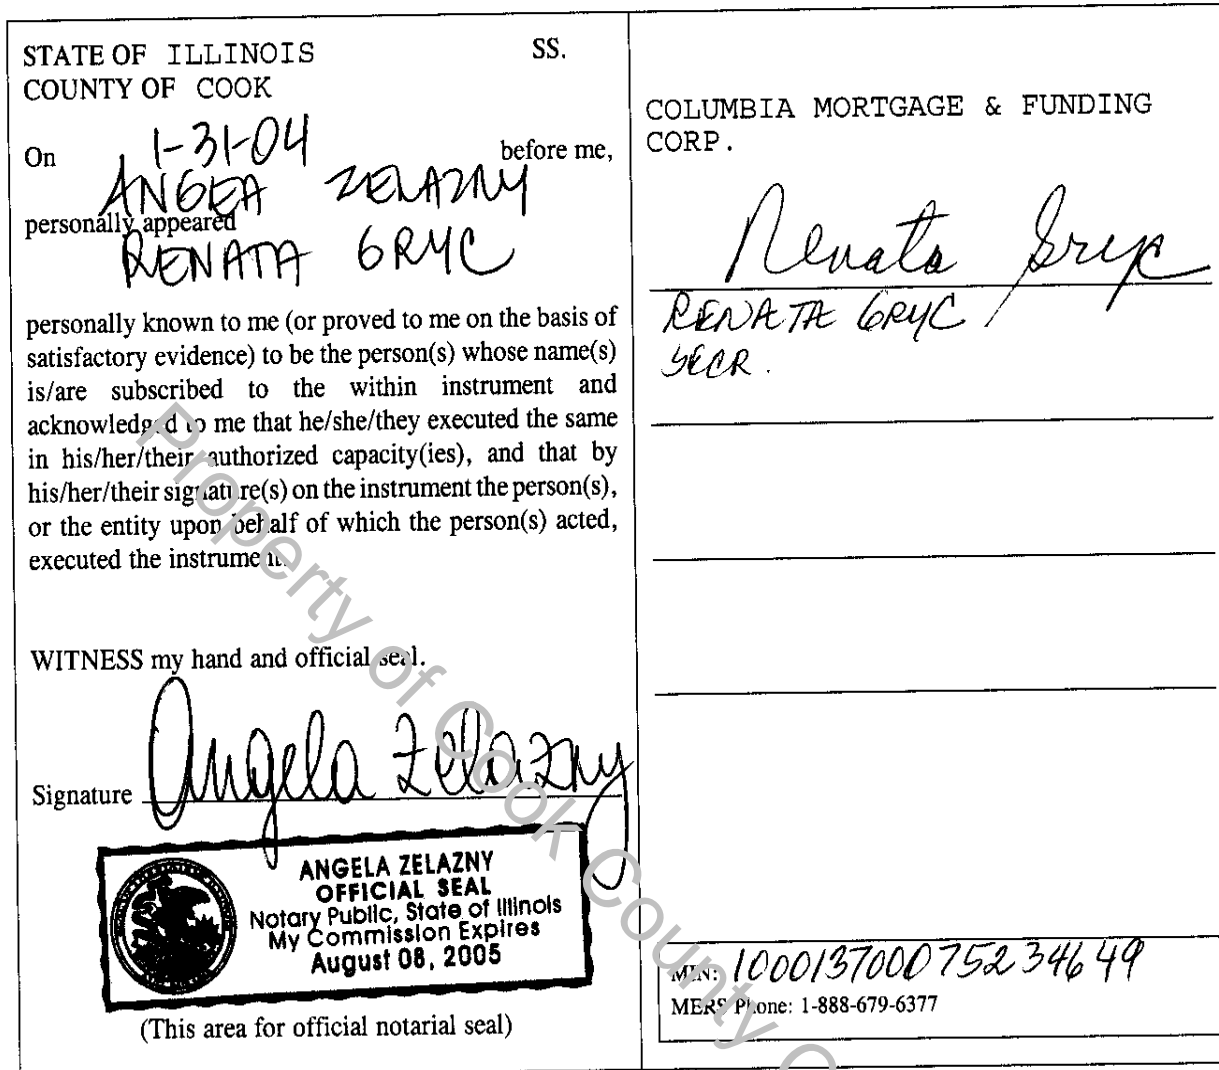 STATE OF ILLINOIS SS.
COUNTY OF COOK
On 1-31-04 before me,
ANGEA ZELAZNY
personally appeared
RENATA GRYC
personally known to me (or proved to me on the basis of
satisfactory evidence) to be the person(s) whose name(s)
is/are subscribed to the within instrument and
acknowledged to me that he/she/they executed the same
in his/her/their authorized capacity(ies), and that by
his/her/their signature(s) on the instrument the person(s),
or the entity upon behalf of which the person(s) acted,
executed the instrument.
WITNESS my hand and official seal.
Signature Angela Zelazny
ANGELA ZELAZNY
OFFICIAL SEAL
Notary Public, State of Illinois
My Commission Expires
August 08, 2005
(This area for official notarial seal)
COLUMBIA MORTGAGE & FUNDING
CORP.
Renata Gryc
RENATA GRYC
SECR.
MIN: 100013700075234649
MERS Phone: 1-888-679-6377
Property of Cook County